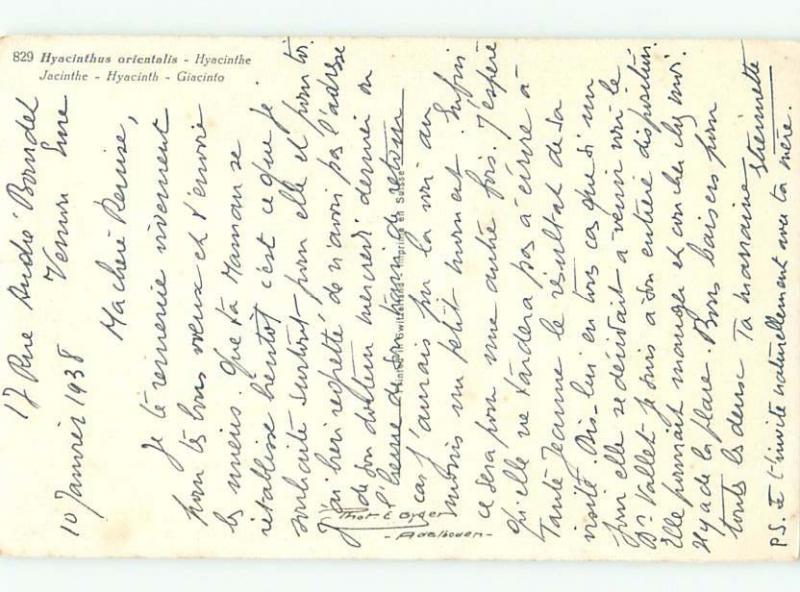 829 Hyacinthus orientalis - Hyacinthe
Jacinthe - Hyacinth - Giacinto
17 Rue André Bourdel
Vernon Eure
10 Janvier 1938
Ma chère Denise,
Je te remercie vivement
pour tes bons vœux et t'envoie
les miens. Que ta Maman se
rétablisse bientôt c'est ce que je
souhaite surtout pour elle et pour toi.
J'ai bien regretté de n'avoir pas l'adresse
de son docteur mercredi dernier ou
l'heure de son train de retour
cas j'aurais pu la voir au
moins un petit moment. Enfin
ce sera pour une autre fois. J'espère
qu'elle ne tardera pas à écrire à
Tante Jeanne le résultat de sa
visite. Dis-lui en tous cas que si un
jour elle se décidait à venir voir le
Dr Vallet je suis à son entière disposition.
Elle pourrait manger et coucher chez moi.
Il y a de la place. Bons baisers pour
toutes les deux Ta marraine
P.S. Je t'invite naturellement avec ta mère.
Phot. E. Gyger
- Adelboden -
Printed in Switzerland - Imprimé en Suisse